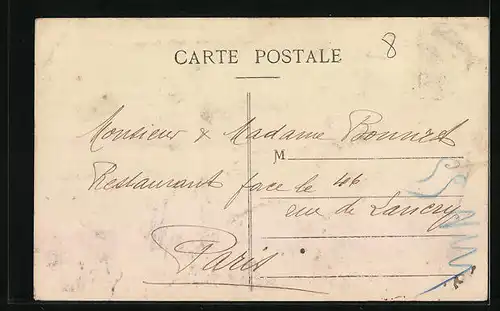 8
CARTE POSTALE
Monsieur & Madame Bonnet
M
Restaurant face le 46
rue de Lancry
Paris